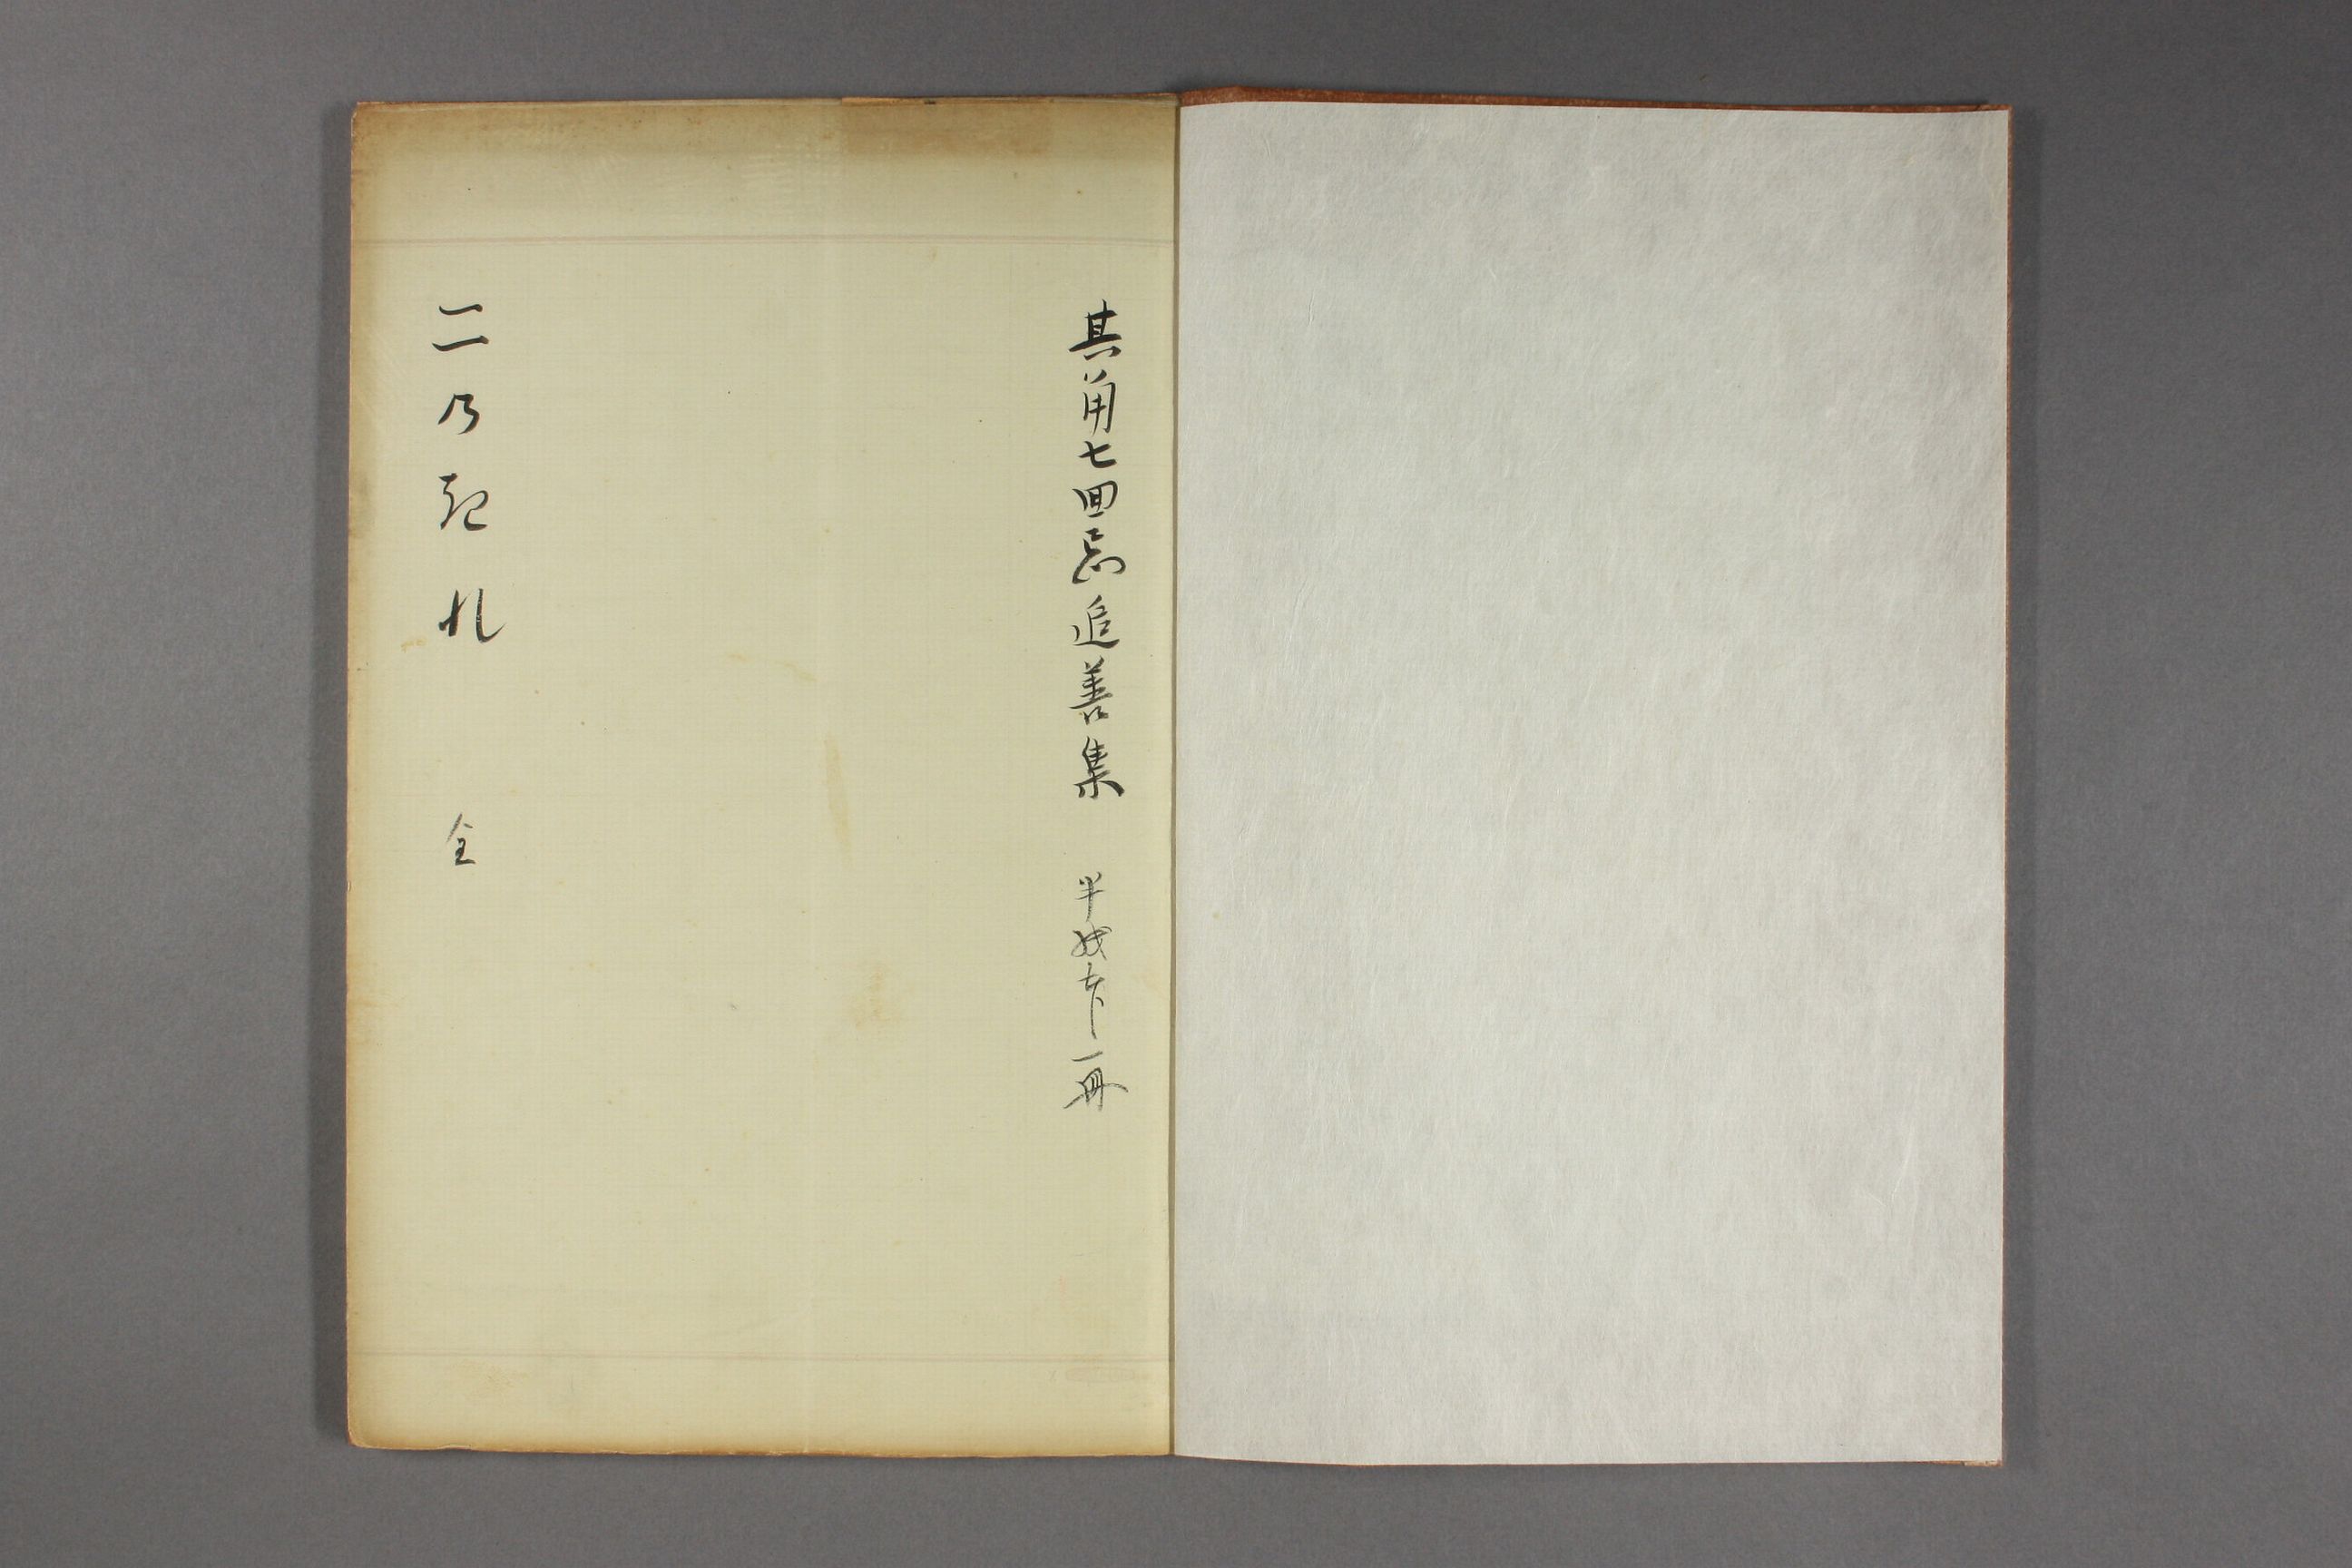 其角七回忌追善集 半紙本一冊
二乃起れ 全